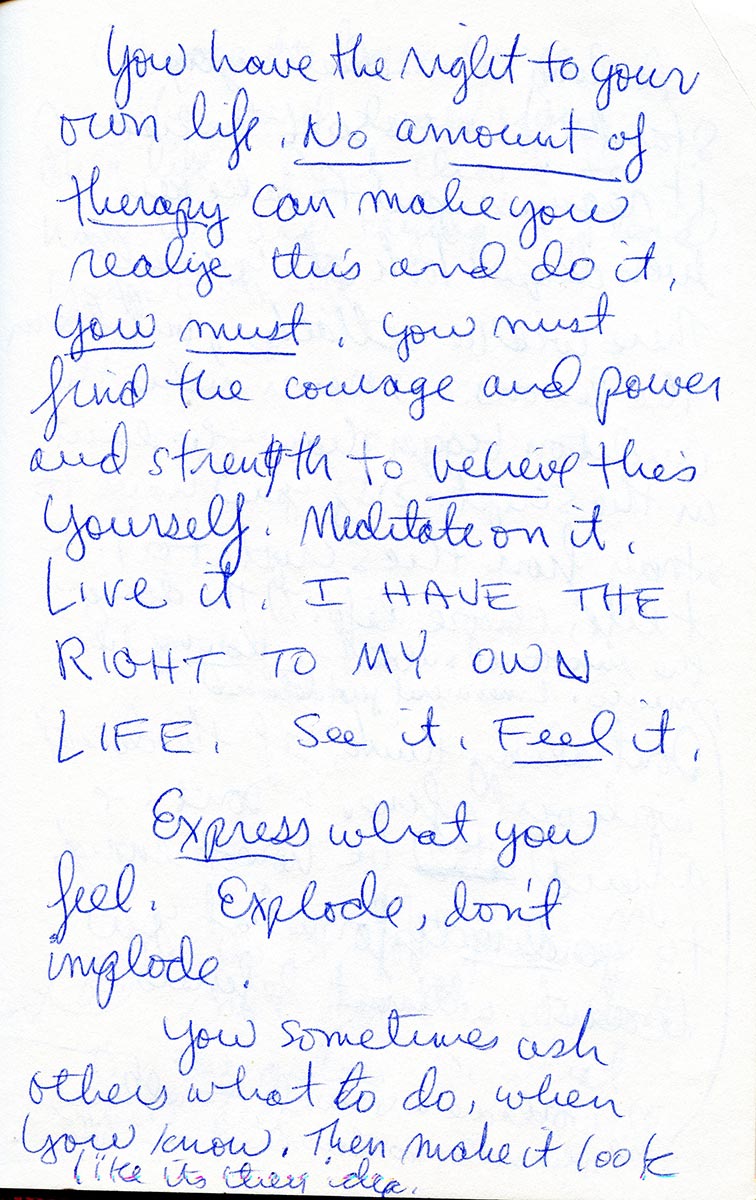 You have the right to your
own life. No amount of
therapy can make you
realize this and do it.
You must. You must
find the courage and power
and strength to believe this
yourself. Meditate on it.
Live it. I HAVE THE
RIGHT TO MY OWN
LIFE. See it. Feel it.
Express what you
feel. Explode, don't
implode.
You sometimes ask
others what to do, when
you know. Then make it look
like its their idea.